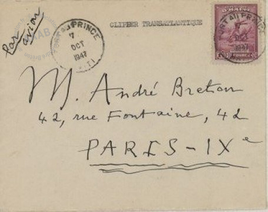 Par avion
PORT AU PRINCE
7
OCT
1947
HAITI
CLIPPER TRANSATLANTIQUE
M. André Breton
42, rue Fontaine, 42
PARIS-IXe